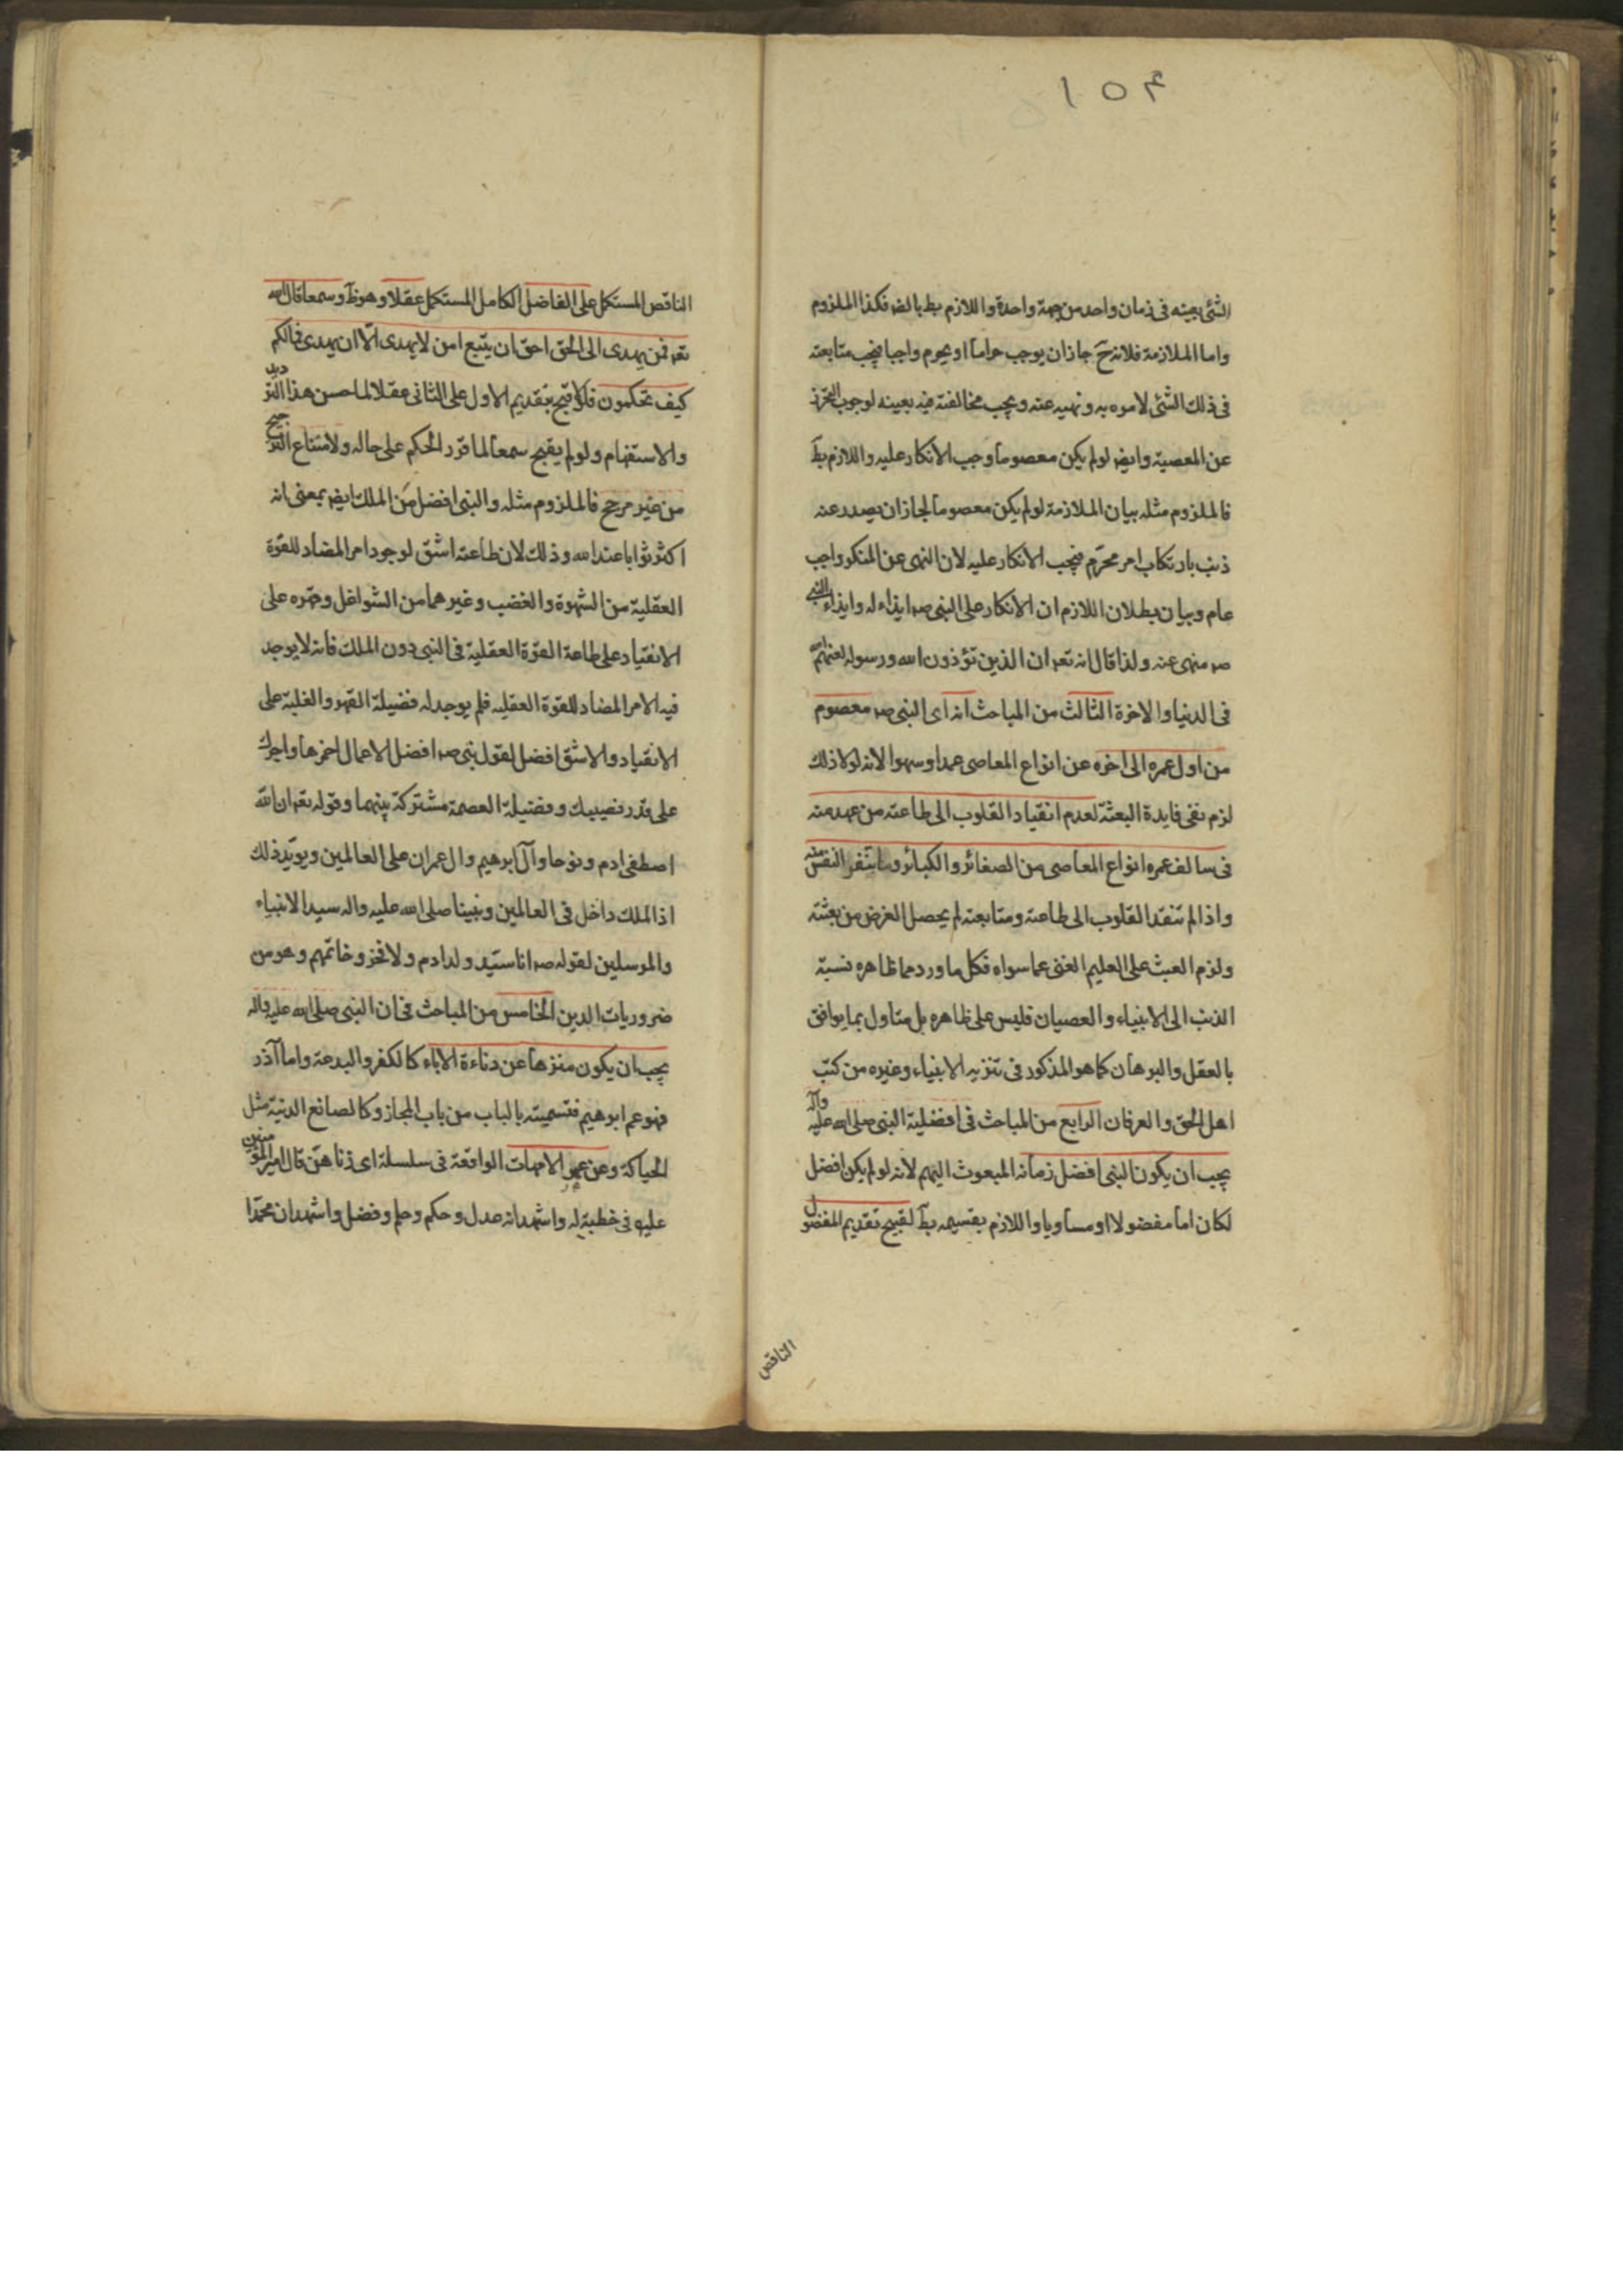 ١٥٤
الشئ بعينه فى زمان واحد من جهة واحدة واللازم بط بالضر فكذا الملزوم
واما الملازمة فلانه ح جازان يوجب حراما او يحرم واجبا فيجب متابعته
فى ذلك الشئ لامره به و نهيه عنه ويجب مخالفته فيه بعينه لوجوب التحرز
عن المعصية وايض لو لم يكن معصوما وجب الانكار عليه واللازم بط
فالملزوم مثله بيان الملازمة لو لم يكن معصوما لجاز ان يصدر عنه
ذنب بارتكاب امر محرم فيجب الانكار عليه لان النهى عن المنكر واجب
عام وبيان بطلان اللازم ان الانكار على النبى صه ايذاء له وايذاء النبى
صه منهى عنه ولذا قال الله تعه ان الذين تؤذون الله ورسوله لعنهم الله
فى الدنيا والاخرة الثالث من المباحث انه اى النبى صه معصوم
من اول عمره الى اخره عن انواع المعاصى عمدا وسهوا لانه لولا ذلك
لزم نفى فايدة البعثة لعدم انقياد القلوب الى طاعته من عهد منه
فى سالف عمره انواع المعاصى من الصغائر والكبائر وما تنفر النفس منه
واذا لم تنقد القلوب الى طاعته ومتابعته لم يحصل الغرض من بعثته
ولزم العبث على العليم الغنى عما سواه فكل ما ورد مما ظاهره نسبة
الذنب الى الانبياء والعصيان فليس على ظاهره بل متاول بما يوافق
بالعقل والبرهان كما هو المذكور فى تنزيه الانبياء وغيره من كتب
اهل الحق والعرفان الرابع من المباحث فى افضلية النبى صلى الله عليه وآله
يجب ان يكون النبى افضل زمانه المبعوث اليهم لانه لو لم يكن افضل
لكان اما مفضولا او مساويا واللازم بقسيمه بط لقبح تقديم المفضول
الناقص
الناقص المستكمل على الفاضل الكامل المستكمل عقلا وهو ظ وسمعا قال الله
تعه فمن يهدى الى الحق احق ان يتبع امن لا يهدى الا ان يهدى فمالكم
كيف تحكمون فلولا قبح بتقديم الاول على الثانى عقلا لما حسن هذا الترديد
والاستفهام ولو لم يقبح سمعا لما قرر الحكم على حاله ولامتناع الترجيح
من غير مرجح فالملزوم مثله والنبى افضل من الملك ايض بمعنى انه
اكثر ثوابا عند الله وذلك لان طاعته اشق لوجود امر المضاد للقوة
العقلية من الشهوة والغضب وغيرهما من الشواغل وقهره على
الانقياد على طاعة القوة العقلية فى النبى دون الملك فانه لا يوجد
فيه الامر المضاد للقوة العقليه فلم يوجد له فضيلة القهر والغلبة على
الانقياد والاشق افضل لقول نبى صه افضل الاعمال احمزها واجرك
على قدر نصيبك وفضيلة العصمة مشتركة بينهما وقوله تعه ان الله
اصطفى ادم ونوحا وآل ابرهيم وال عمران على العالمين ويويد ذلك
اذ الملك داخل فى العالمين ونبينا صلى الله عليه واله سيد الانبياء
والمرسلين لقوله صه انا سيد ولد ادم ولا فخر وخاتمهم وهو من
ضروريات الدين الخامس من المباحث فى ان النبى صلى الله عليه واله
يجب ان يكون منزها عن دناءة الاباء كالكفر والبدعة واما آذر
فهو عم ابرهيم فتسميته بالباب من باب المجاز وكالصانع الدنية مثل
الحياكة وعن عهر الامهات الواقعة فى سلسلة اى زناهن قال امير المؤمنين
عليه فى خطبة له واشهد انه عدل وحكم وحلم وفضل واشهد ان محمدا